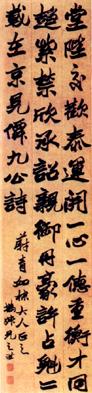 堂陛交歡泰運開一心一德重衡才同
趨紫禁欣承詔親御丹豪許占魁二
載在京見儕九公詩
蔚青如棣大人正之